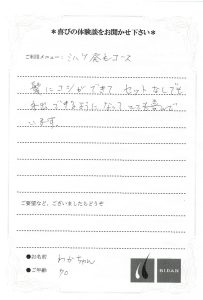 ＊喜びの体験談をお聞かせ下さい＊
ご利用メニュー：ミハツ発毛コース
髪にコシができて セットなしでも
外出できるようになって とても喜んで
います。
ご要望など、ございましたらどうぞ
●お名前 わかちゃん
●ご年齢 70
BIDAN